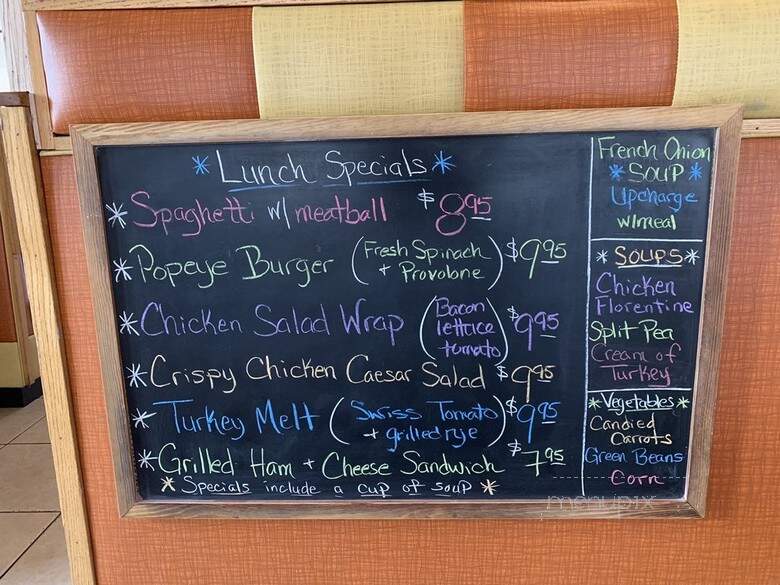 * Lunch Specials *
* Spaghetti w/ meatball $8.95
* Popeye Burger (Fresh Spinach + Provolone) $9.95
* Chicken Salad Wrap (Bacon lettuce tomato) $9.95
* Crispy Chicken Caesar Salad $9.95
* Turkey Melt (Swiss Tomato + grilled rye) $9.95
* Grilled Ham + Cheese Sandwich $7.95
* Specials include a cup of soup *
French Onion
* SOUP *
Upcharge
w/meal
* SOUPS *
Chicken
Florentine
Split Pea
Cream of
Turkey
* Vegetables *
Candied
Carrots
Green Beans
Corn
menupix